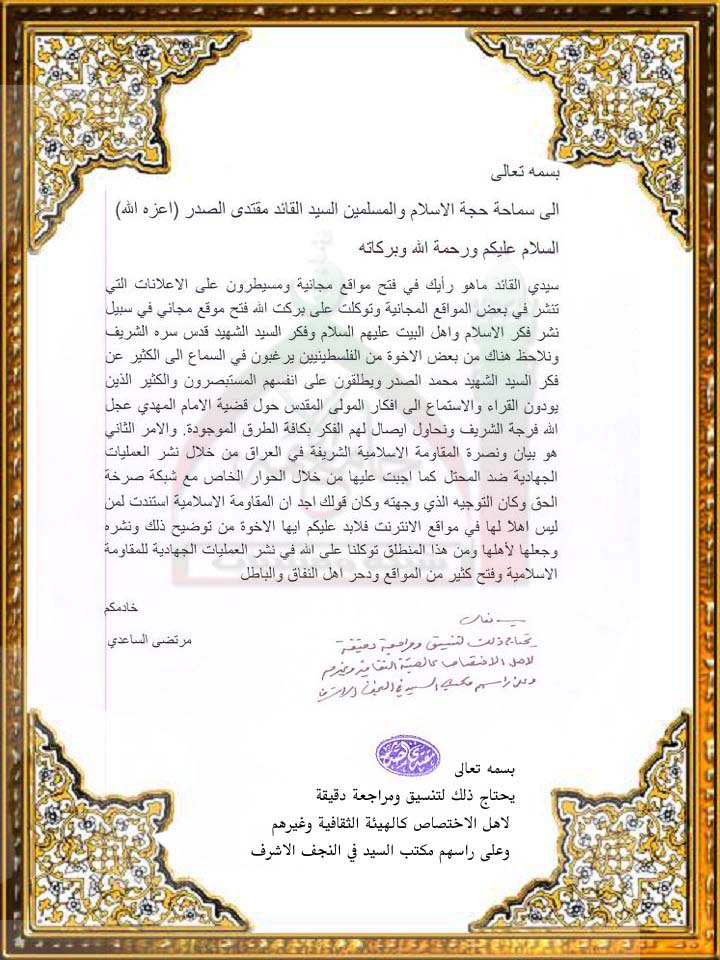 بسمه تعالى
الى سماحة حجة الاسلام والمسلمين السيد القائد مقتدى الصدر (اعزه الله)
السلام عليكم ورحمة الله وبركاته
سيدي القائد ماهو رأيك في فتح مواقع مجانية ومسيطرون على الاعلانات التي
تنشر في بعض المواقع المجانية وتوكلت على بركت الله فتح موقع مجاني في سبيل
نشر فكر الاسلام واهل البيت عليهم السلام وفكر السيد الشهيد قدس سره الشريف
ونلاحظ هناك من بعض الاخوة من الفلسطينيين يرغبون في السماع الى الكثير عن
فكر السيد الشهيد محمد الصدر ويطلقون على انفسهم المستبصرون والكثير الذين
يودون القراء والاستماع الى افكار المولى المقدس حول قضية الامام المهدي عجل
الله فرجة الشريف ونحاول ايصال لهم الفكر بكافة الطرق الموجودة. والامر الثاني
هو بيان ونصرة المقاومة الاسلامية الشريفة في العراق من خلال نشر العمليات
الجهادية ضد المحتل كما اجبت عليها من خلال الحوار الخاص مع شبكة صرخة
الحق وكان التوجيه الذي وجهته وكان قولك اجد ان المقاومة الاسلامية استندت لمن
ليس اهلا لها في مواقع الانترنت فلابد عليكم ايها الاخوة من توضيح ذلك ونشره
وجعلها لأهلها ومن هذا المنطلق توكلنا على الله في نشر العمليات الجهادية للمقاومة
الاسلامية وفتح كثير من المواقع ودحر اهل النفاق والباطل
خادمكم
مرتضى الساعدي
بسمه تعالى
يحتاج ذلك لتنسيق ومراجعة دقيقة
لاهل الاختصاص كالهيئة الثقافية وغيرهم
وعلى راسهم مكتب السيد في النجف الاشرف
بسمه تعالى
يحتاج ذلك لتنسيق ومراجعة دقيقة
لاهل الاختصاص كالهيئة الثقافية وغيرهم
وعلى راسهم مكتب السيد في النجف الاشرف